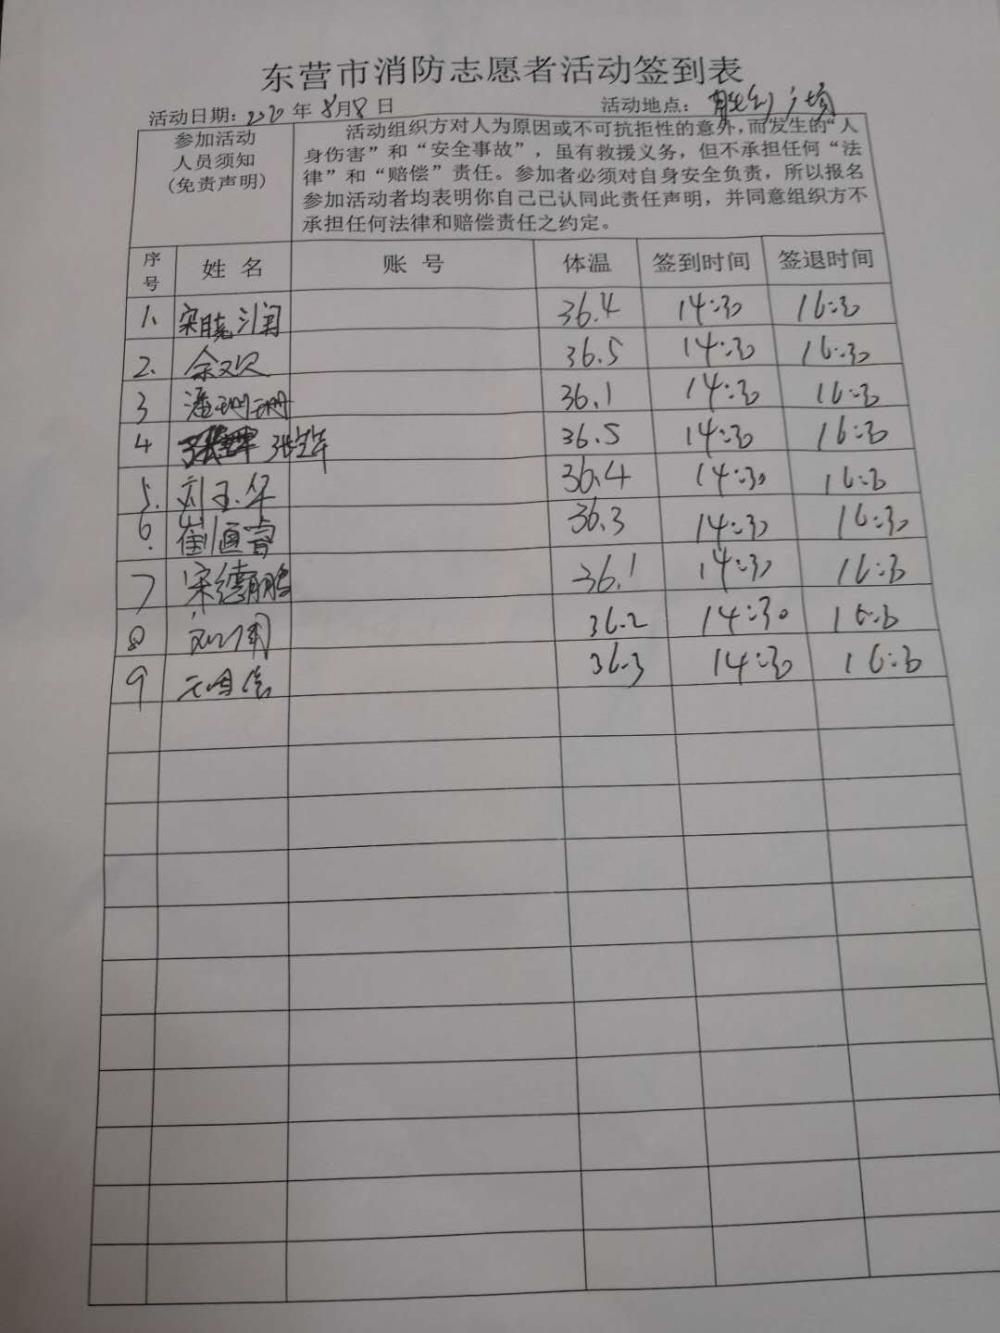 东营市消防志愿者活动签到表
活动日期：2020年8月8日 活动地点：胜利广场
参加活动
人员须知
(免责声明)
活动组织方对人为原因或不可抗拒性的意外，而发生的“人
身伤害”和“安全事故”，虽有救援义务，但不承担任何“法
律”和“赔偿”责任。参加者必须对自身安全负责，所以报名
参加活动者均表明你自己已认同此责任声明，并同意组织方不
承担任何法律和赔偿责任之约定。
序号 姓名 账号 体温 签到时间 签退时间
1、 宋晓润 36.4 14:30 16:30
2. 余双 36.5 14:30 16:30
3 潘珊珊 36.1 14:30 16:30
4 张宝华 36.5 14:30 16:30
5. 刘玉华 36.4 14:30 16:30
6. 崔通 36.3 14:30 16:30
7 宋德鹏 36.1 14:30 16:30
8 36.2 14:30 16:30
9 36.3 14:30 16:30